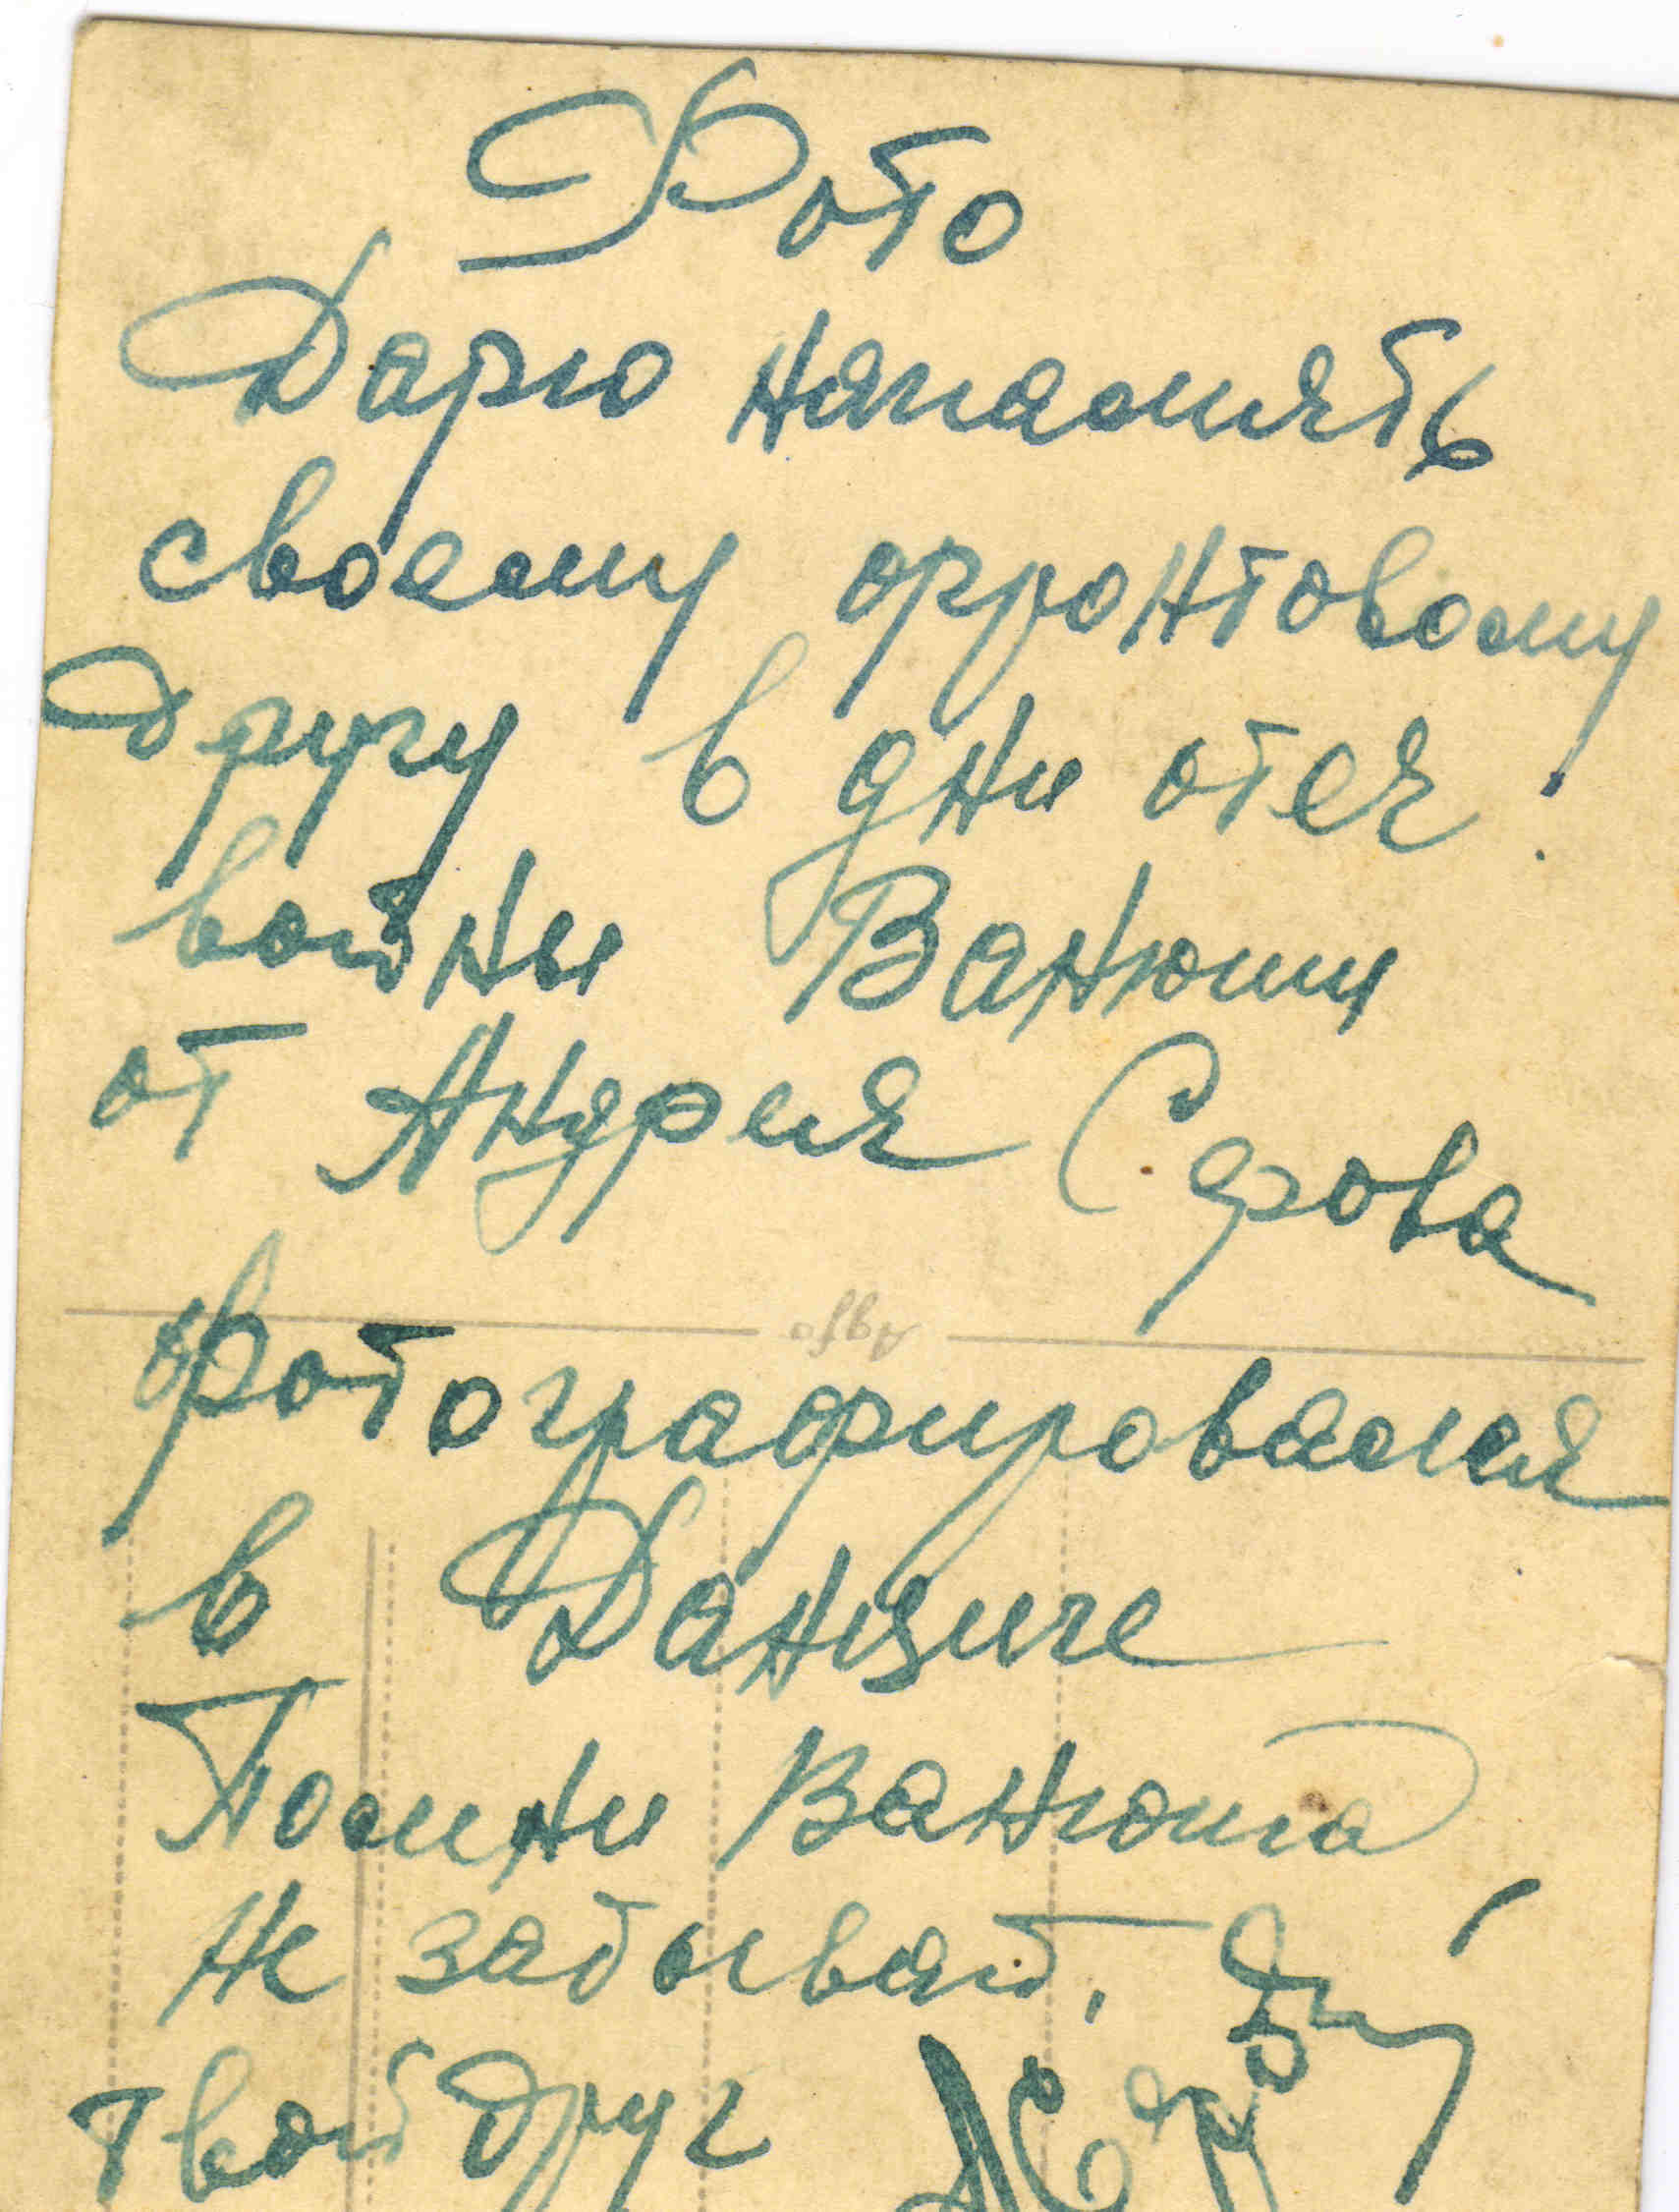 Фото
Дарю напамять
своему фронтовому
другу в дни отеч.
войны Ванюши
от Андрея Серова
Agfa
фотографировался
в Данциге
Помни Ванюша
не забывай.
твой друг